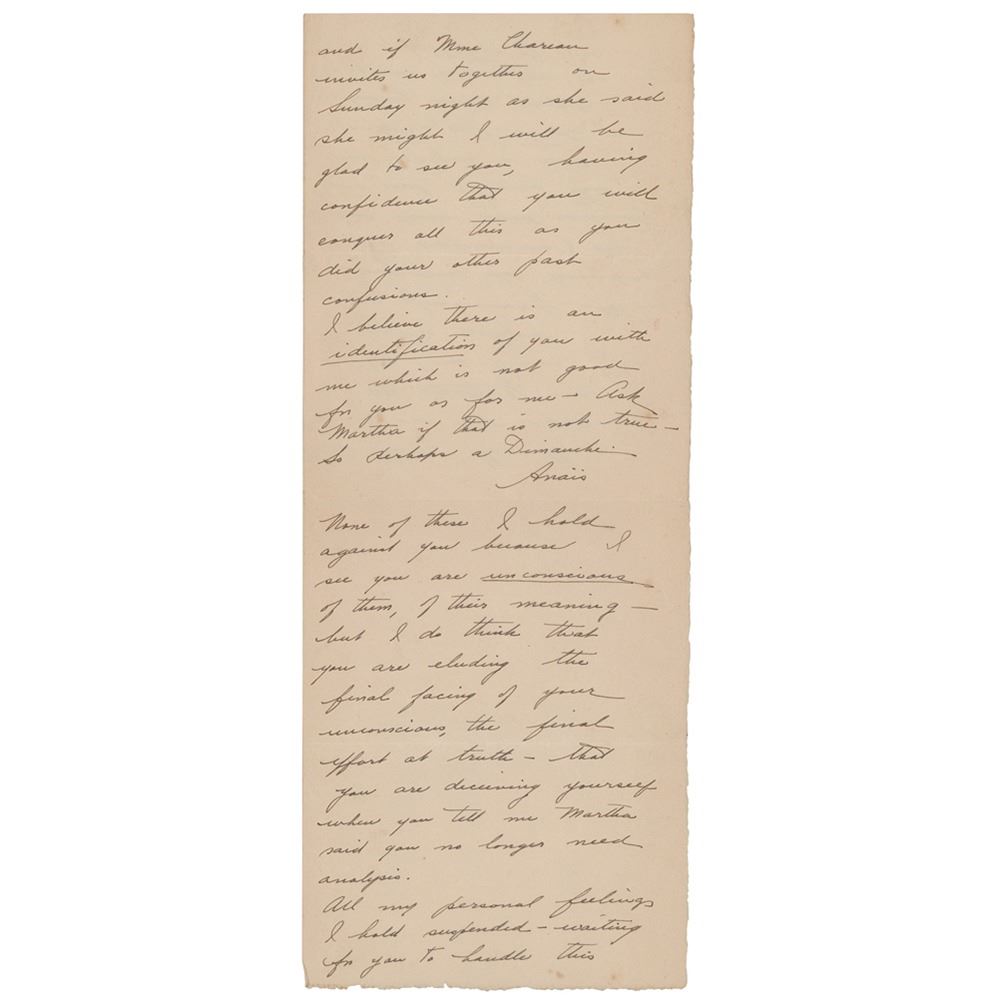 and if Mme Chareau
invites us together on
Sunday night as she said
she might I will be
glad to see you, having
confidence that you will
conquer all this as you
did your other past
confusions.
I believe there is an
identification of you with
me which is not good
for you or for me – Ask
Martha if that is not true –
So perhaps a Dimanche
Anaïs
None of these I hold
against you because I
see you are unconscious
of them, of their meaning –
but I do think that
you are eluding the
final facing of your
unconscious, the final
effort at truth – that
you are deceiving yourself
when you tell me Martha
said you no longer need
analysis.
All my personal feelings
I hold suspended – waiting
for you to handle this